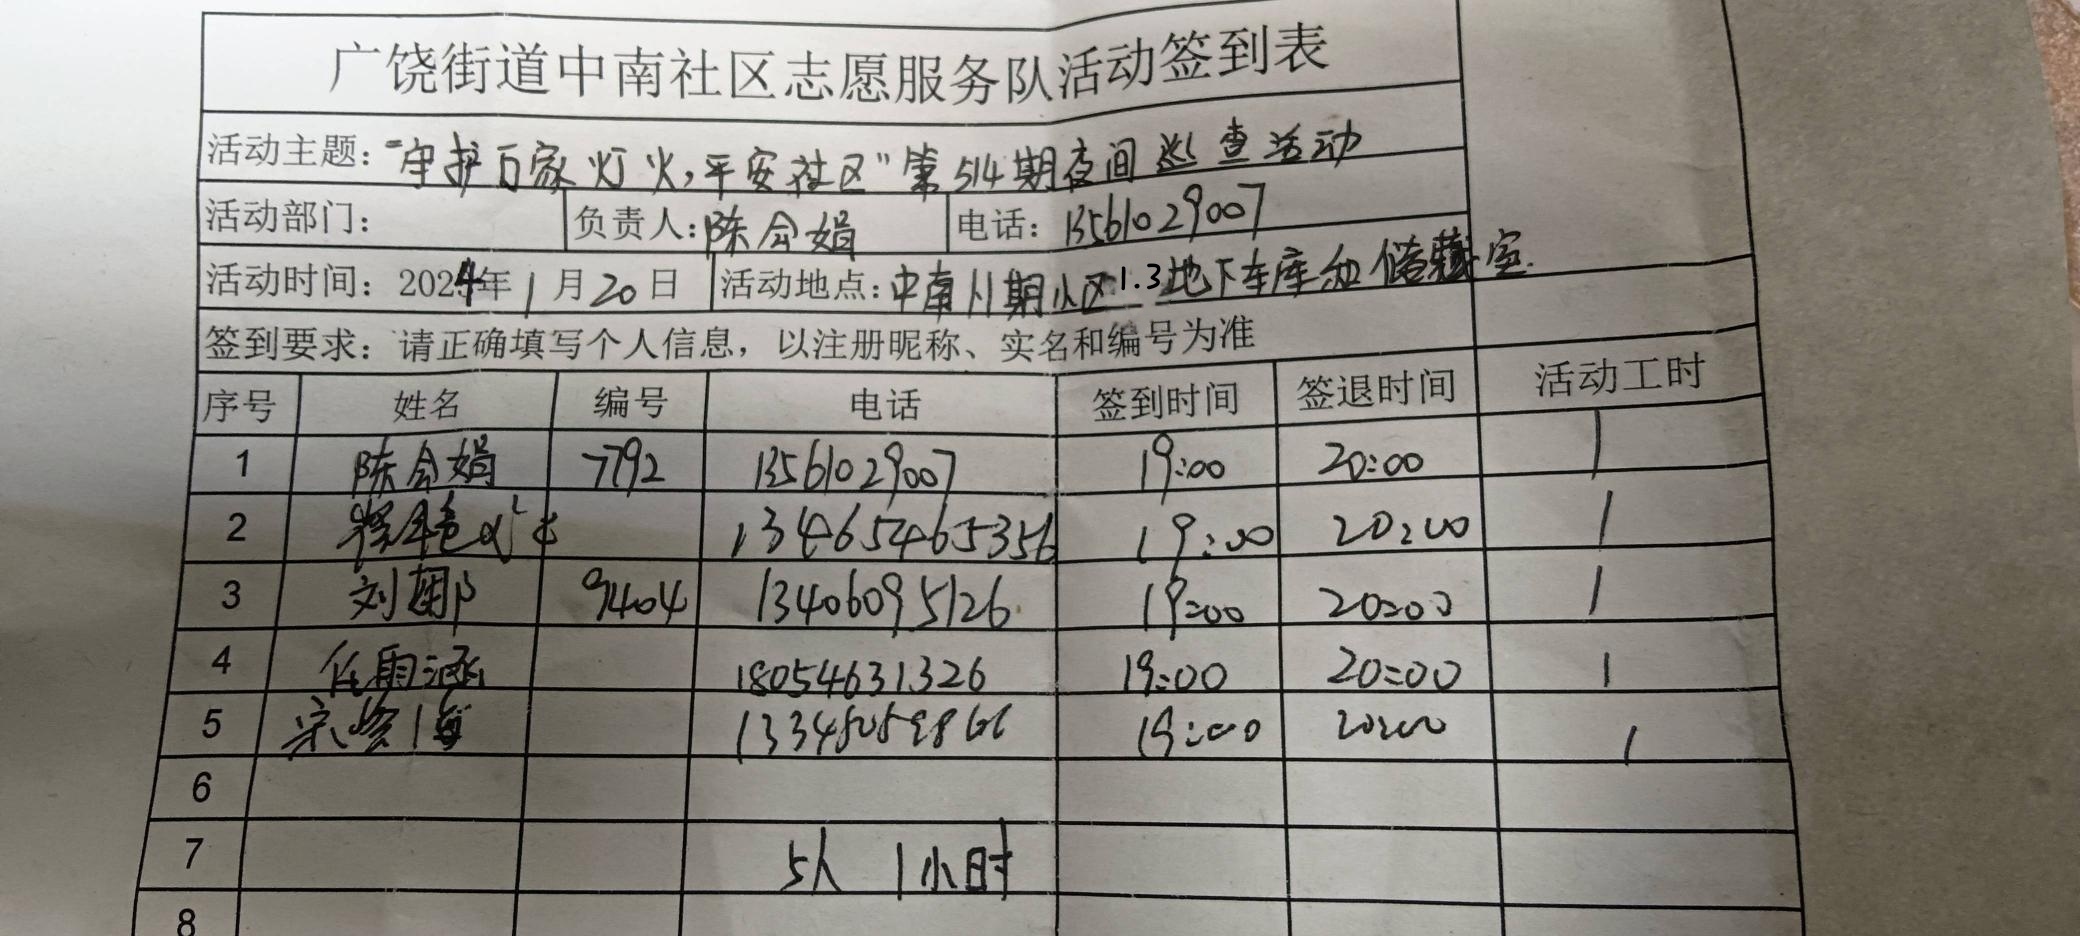 广饶街道中南社区志愿服务队活动签到表
活动主题：“守护万家灯火，平安社区”第514期夜间巡查活动
活动部门： 负责人：陈会娟 电话：13561029007
活动时间：2024年1月20日 活动地点：中南川期小区1.3地下车库和储藏室
签到要求：请正确填写个人信息，以注册昵称、实名和编号为准
序号 姓名 编号 电话 签到时间 签退时间 活动工时
1 陈会娟 7792 13561029007 19:00 20:00 1
2 13465465356 19:00 20:00 1
3 刘 9404 13406095126 19:00 20:00 1
4 任雨涵 18054631326 19:00 20:00 1
5 宋 19:00 20:00 1
6
7 5人 1小时
8